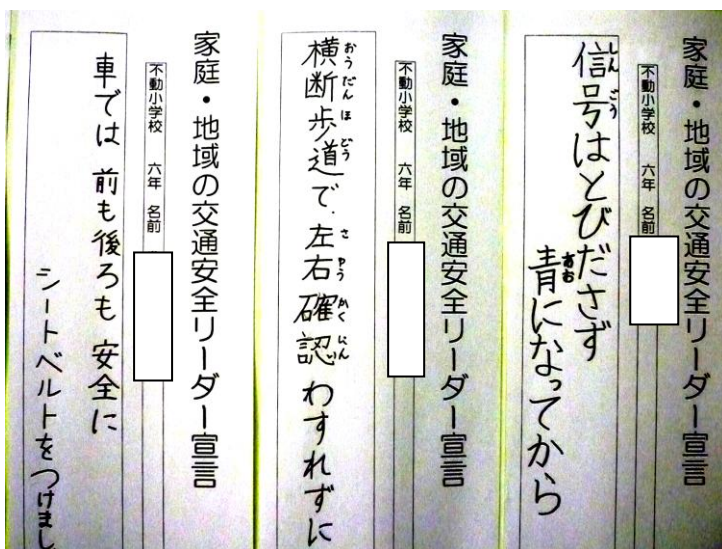 家庭・地域の交通安全リーダー宣言
不動小学校　六年　名前
信号はとびださず
しんごう
青になってから
あお
家庭・地域の交通安全リーダー宣言
不動小学校　六年　名前
横断歩道で、左右確認わすれずに
おうだんほどう　さゆうかくにん
家庭・地域の交通安全リーダー宣言
不動小学校　六年　名前
車では 前も後ろも 安全に
シートベルトをつけまし